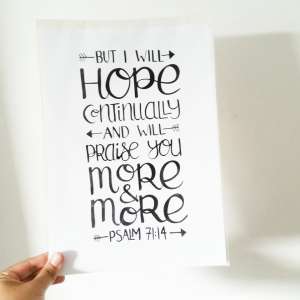 BUT I WILL
HOPE
CONTINUALLY
AND WILL
PRAISE YOU
MORE
&
MORE
PSALM 71:14